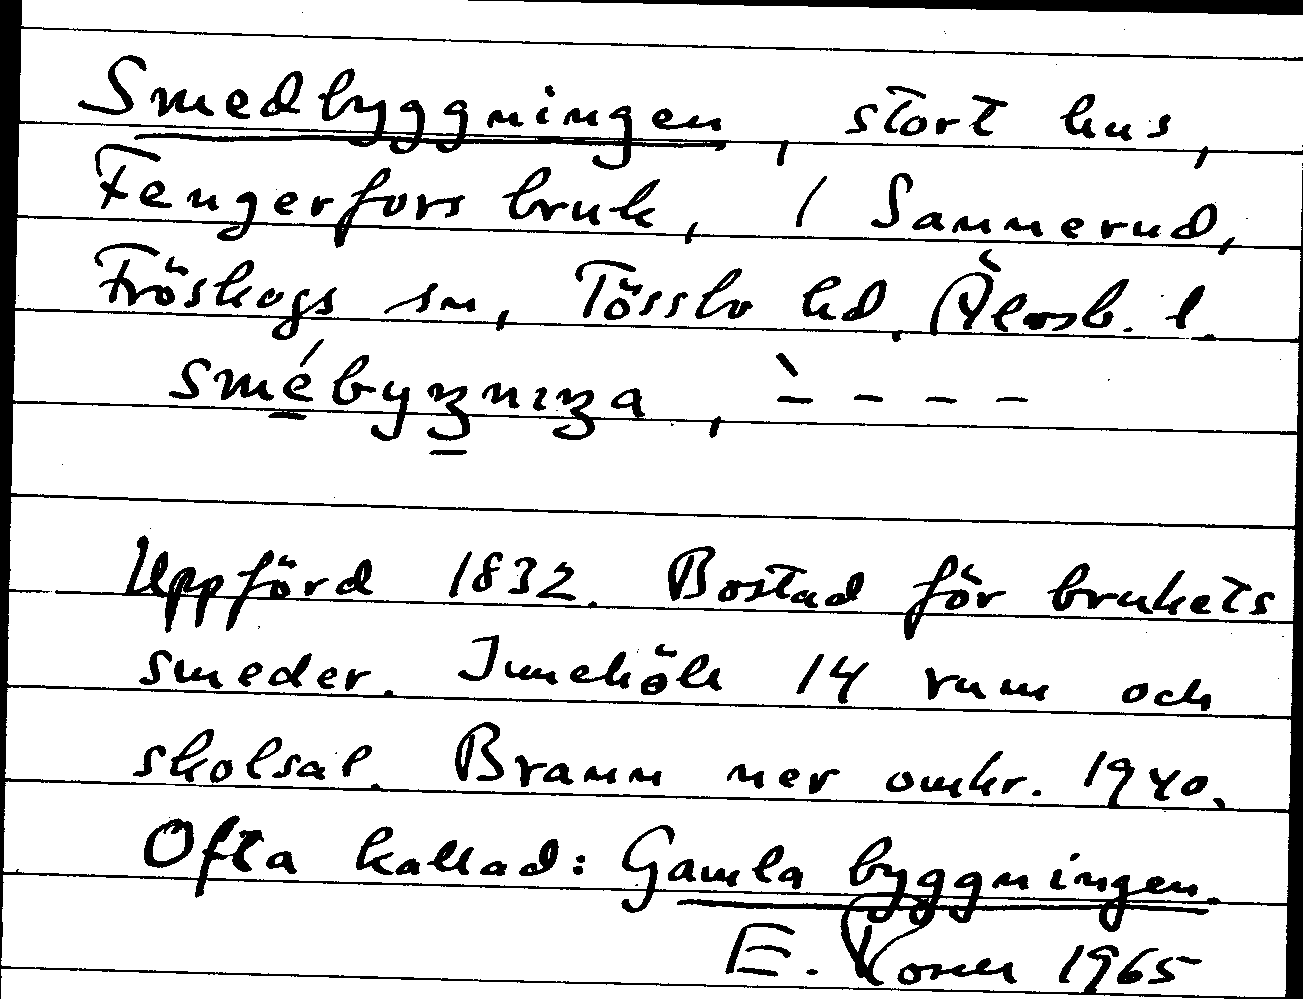 Smedbyggningen, stort hus,
Fengerfors bruk, 1 Sannerud,
Fröskogs sn, Tössbo hd, Älvsb. l.
smébyʒnɩʒa, ` - - - -
Uppförd 1832. Bostad för brukets
smeder. Innehöll 14 rum och
skolsal. Brann ner omkr. 1940.
Ofta kallad: Gamla byggningen.
E. 1965